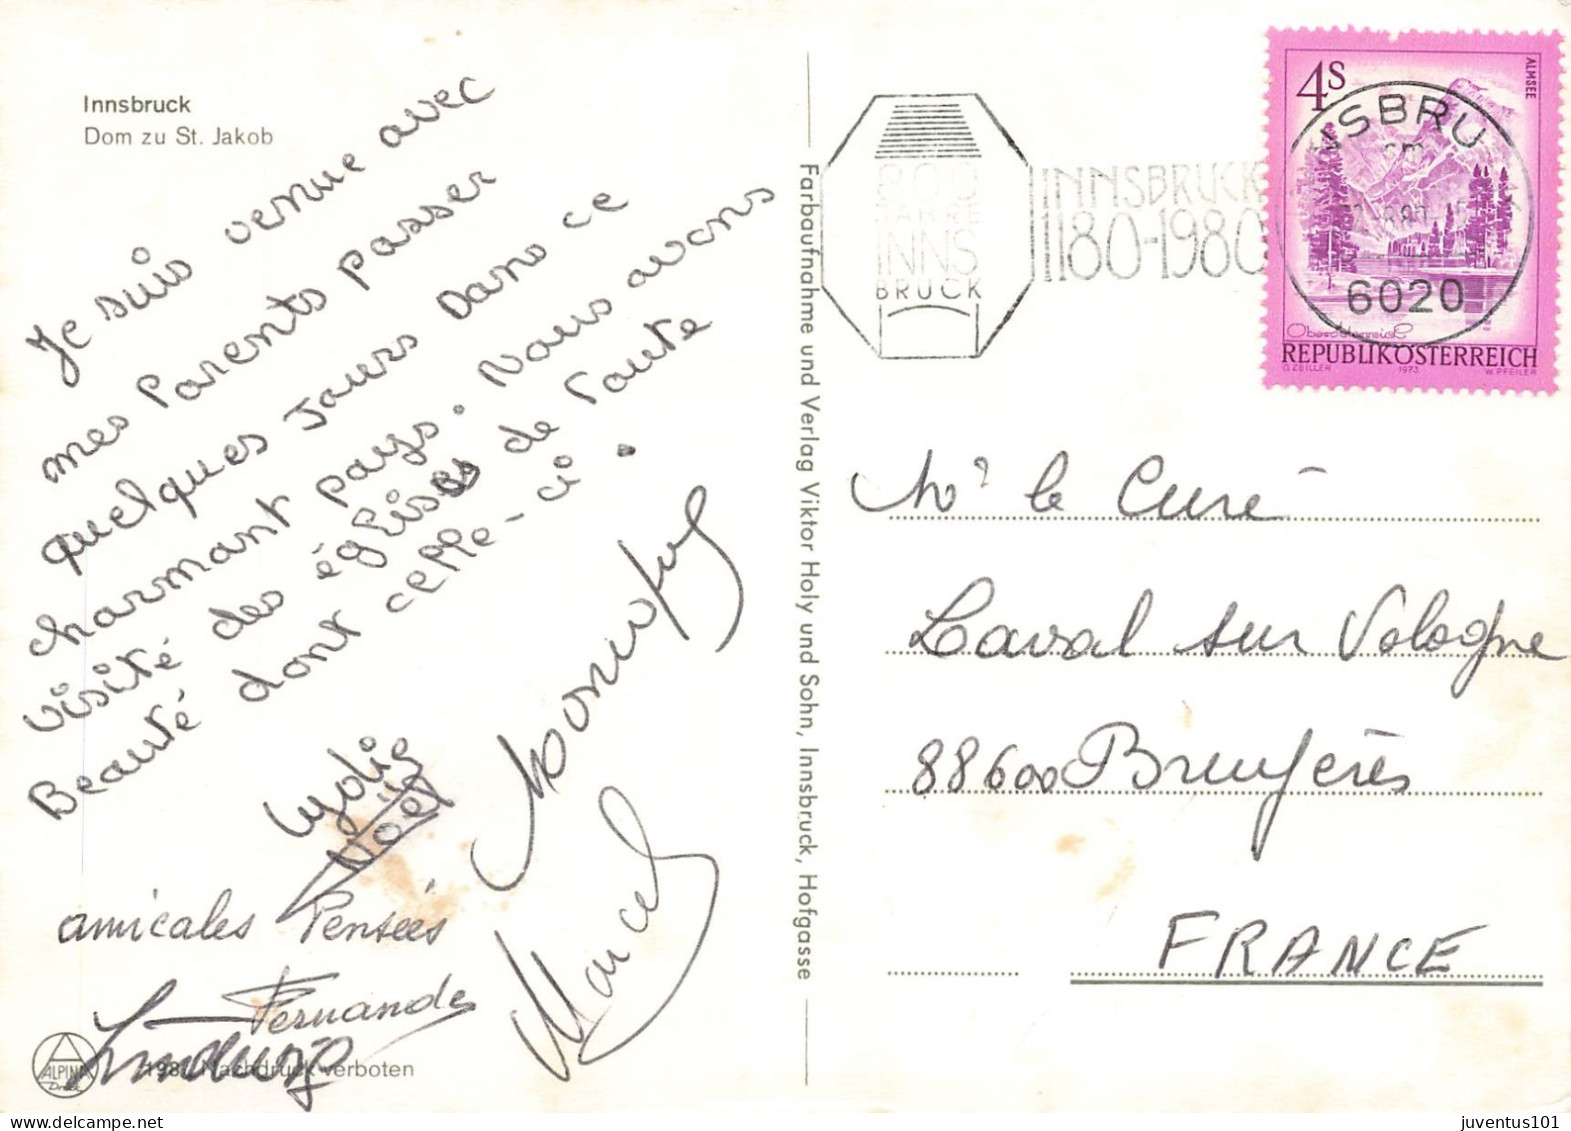 Innsbruck
Dom zu St. Jakob
Je suis venue avec
mes Parents passer
quelques jours Dans ce
charmant pays. Nous avons
visité des églises de Toute
Beauté dont celle-ci.
Lydie
Noël
Marcel
amicales Pensées
Fernande
Nachdruck verboten
ALPINA
Druck
Farbaufnahme und Verlag Viktor Holy und Sohn, Innsbruck, Hofgasse
800
JAHRE
INNS
BRUCK
INNSBRUCK
1180-1980
4S
ALMSEE
NSBRU
6020
Oberösterreich
REPUBLIK ÖSTERREICH
O. ZEILLER 1973 W. PFEILER
Mr le Curé
Laval sur Vologne
88600 Bruyères
FRANCE
juventus101